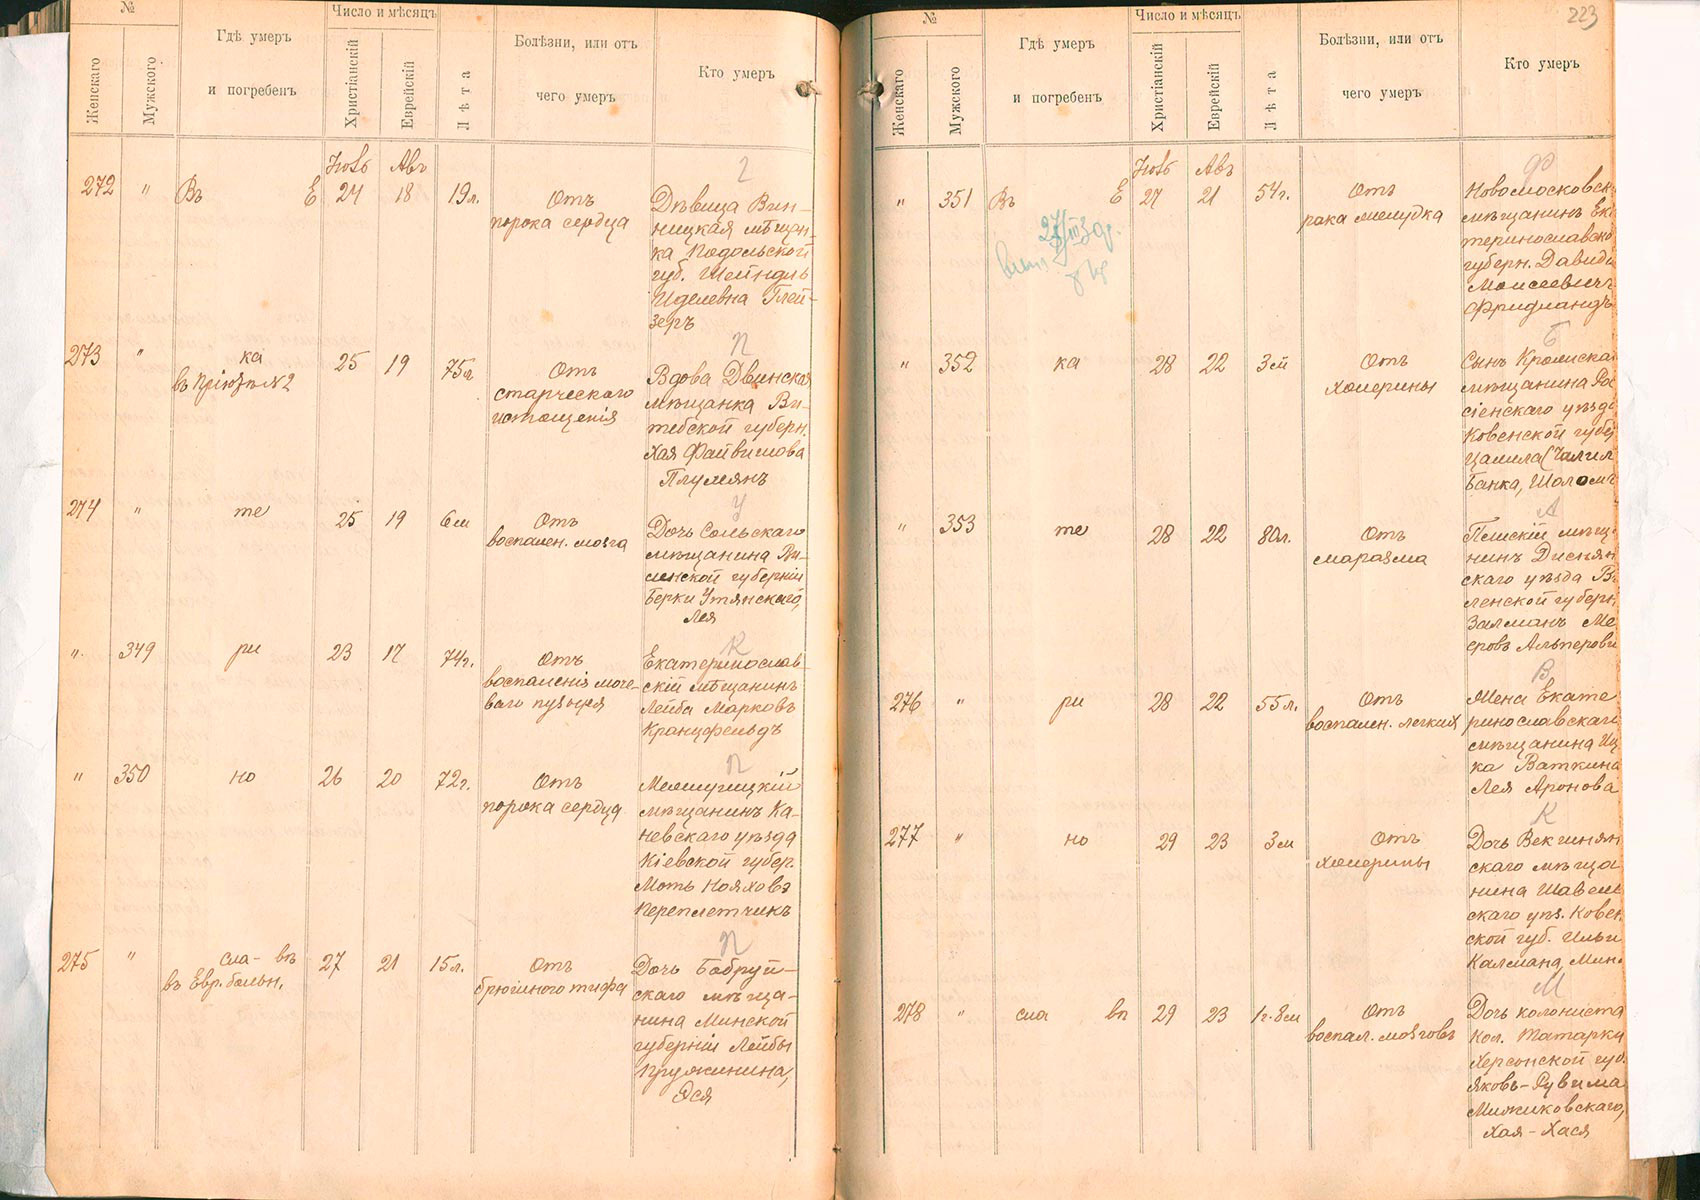 №
Женскаго
Мужского
Гдѣ умеръ
и погребенъ
Число и мѣсяцъ
Христіанскій
Еврейскій
Лѣта
Болѣзни, или отъ
чего умеръ
Кто умеръ
Авъ
Г
272 " Въ Е 24 18 19л.
Отъ
порока сердца
Дѣвица Вин-
ницкая мѣщан-
ка Подольской
губ. Шейндль
Иделевна Глей-
зеръ
П
273 " ка
въ Пріютѣ №2
25 19 75л.
Отъ
старческаго
истощенія
Вдова Двинская
мѣщанка Ви-
тебской губерн.
Хая Файвишова
Плумянъ
У
274 " те 25 19 6м
Отъ
воспален. мозга
Дочь Сольскаго
мѣщанина Ви-
ленской губерніи
Берки Утянскаго,
Лея
К
" 349 ри 23 17 74г.
Отъ
воспаленія моче-
ваго пузыря
Екатеринослав-
скій мѣщанинъ
Лейба Марковъ
Кранцфельдъ
П
" 350 но 26 20 72г.
Отъ
порока сердца
мѣщанинъ Ка-
невскаго уѣзда
Кіевской губер.
Моть Нояховъ
Переплетчикъ
П
275 " сла- въ
въ Евр. больн.
27 21 15л.
Отъ
брюшного тифа
Дочь Бобруй-
скаго мѣща-
нина Минской
губерніи Лейбы
Пружинина,
Эся
223
№
Женскаго
Мужского
Гдѣ умеръ
и погребенъ
Число и мѣсяцъ
Христіанскій
Еврейскій
Лѣта
Болѣзни, или отъ
чего умеръ
Кто умеръ
Авъ
Ф
" 351 Въ Е 27 21 54г.
Отъ
рака желудка
Новомосковск
мѣщанинъ Ека
теринославской
губерн. Давидъ
Моисеевичъ
Фридландъ
Б
" 352 ка 28 22 3м
Отъ
холерины
Сынъ Крожска
мѣщанина Рос
сіенскаго уѣзда
Ковенской губер
Банка, Шоломъ
А
" 353 те 28 22 80л.
Отъ
маразма
мѣща
нинъ Диснян
скаго уѣзда Ви
ленской губерн
Залманъ Ме
еровъ Альперови
В
276 " ри 28 22 55л.
Отъ
воспален. легкихъ
Жена Екате
ринославскаго
мѣщанина Иц
ка Ваткина
Лея Аронова
К
277 " но 29 23 3м
Отъ
холерины
Дочь Векшнян
скаго мѣща
нина Шавель
скаго уѣз. Ковен
ской губ. Ильи
Калмана, Мин
М
278 " сла въ 29 23 1г. 8м
Отъ
воспал. мозговъ
Дочь колониста
Кол. Татарки
Херсонской губ.
Яковъ-Рувима
Мижиковскаго,
Хая-Хася